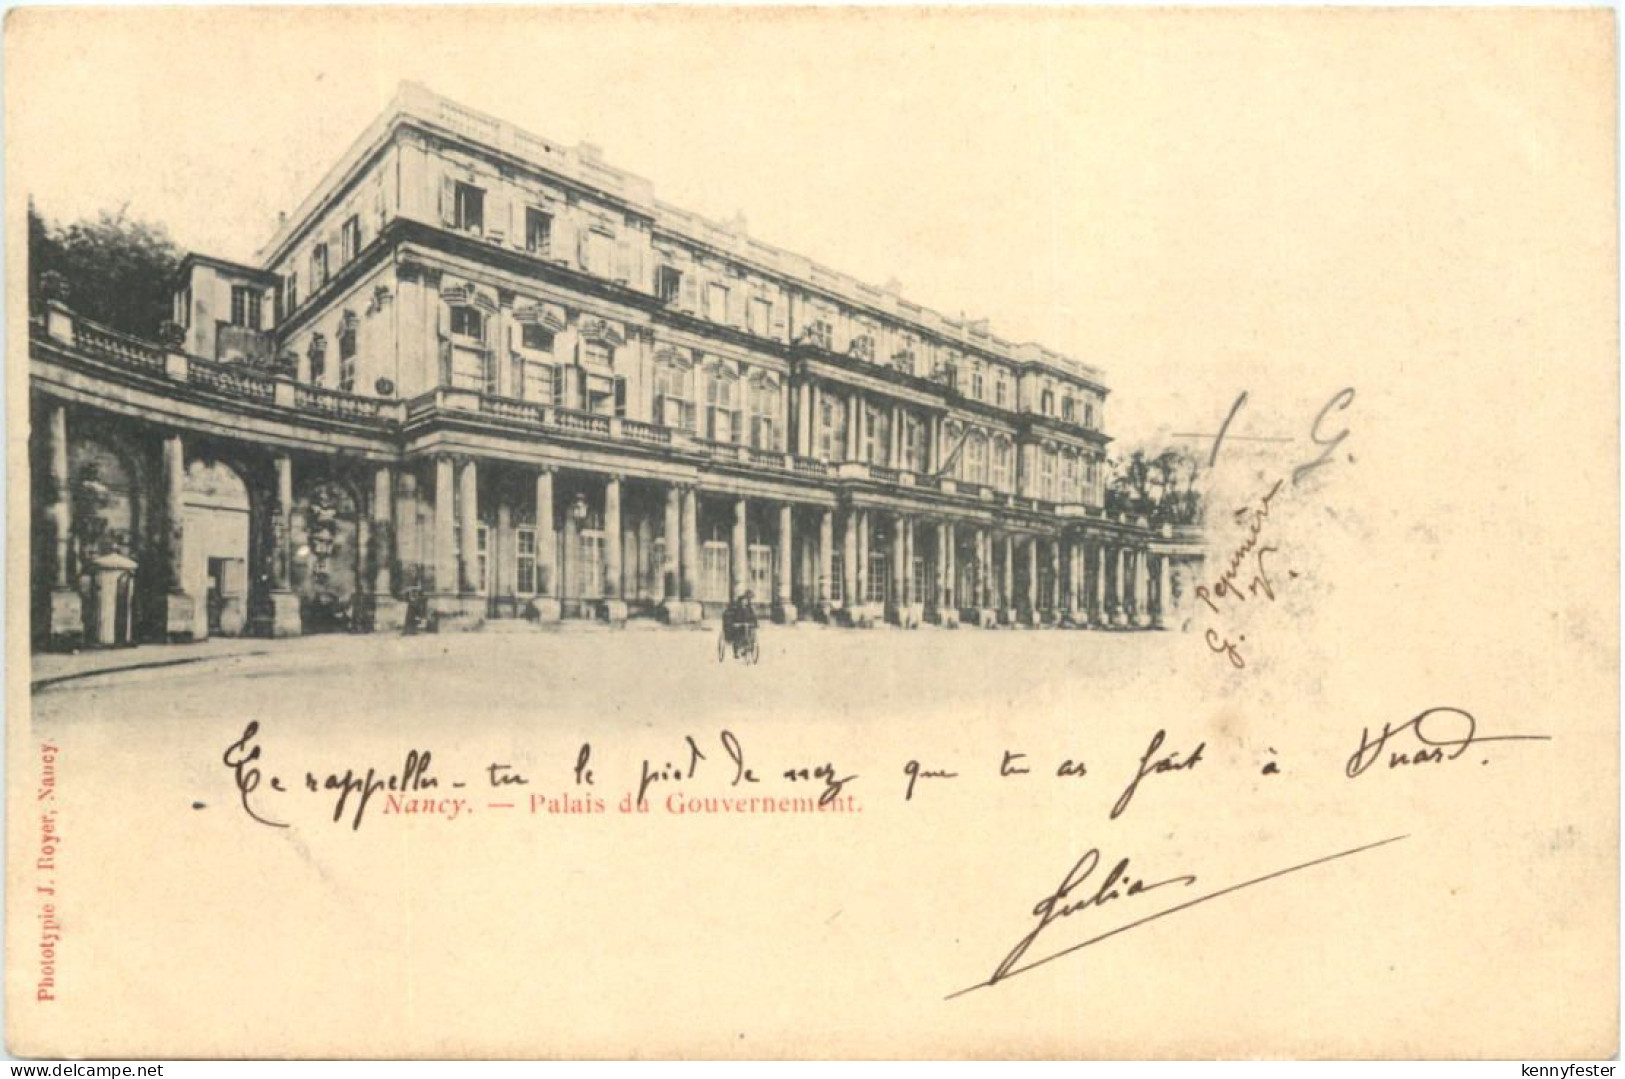 G.
Pepinière
G.
Te rappelles-tu le pied de nez que tu as fait à Huard.
Nancy. — Palais du Gouvernement.
Julia
Phototypie J. Royer, Nancy.
delcampe.net
kennyfester